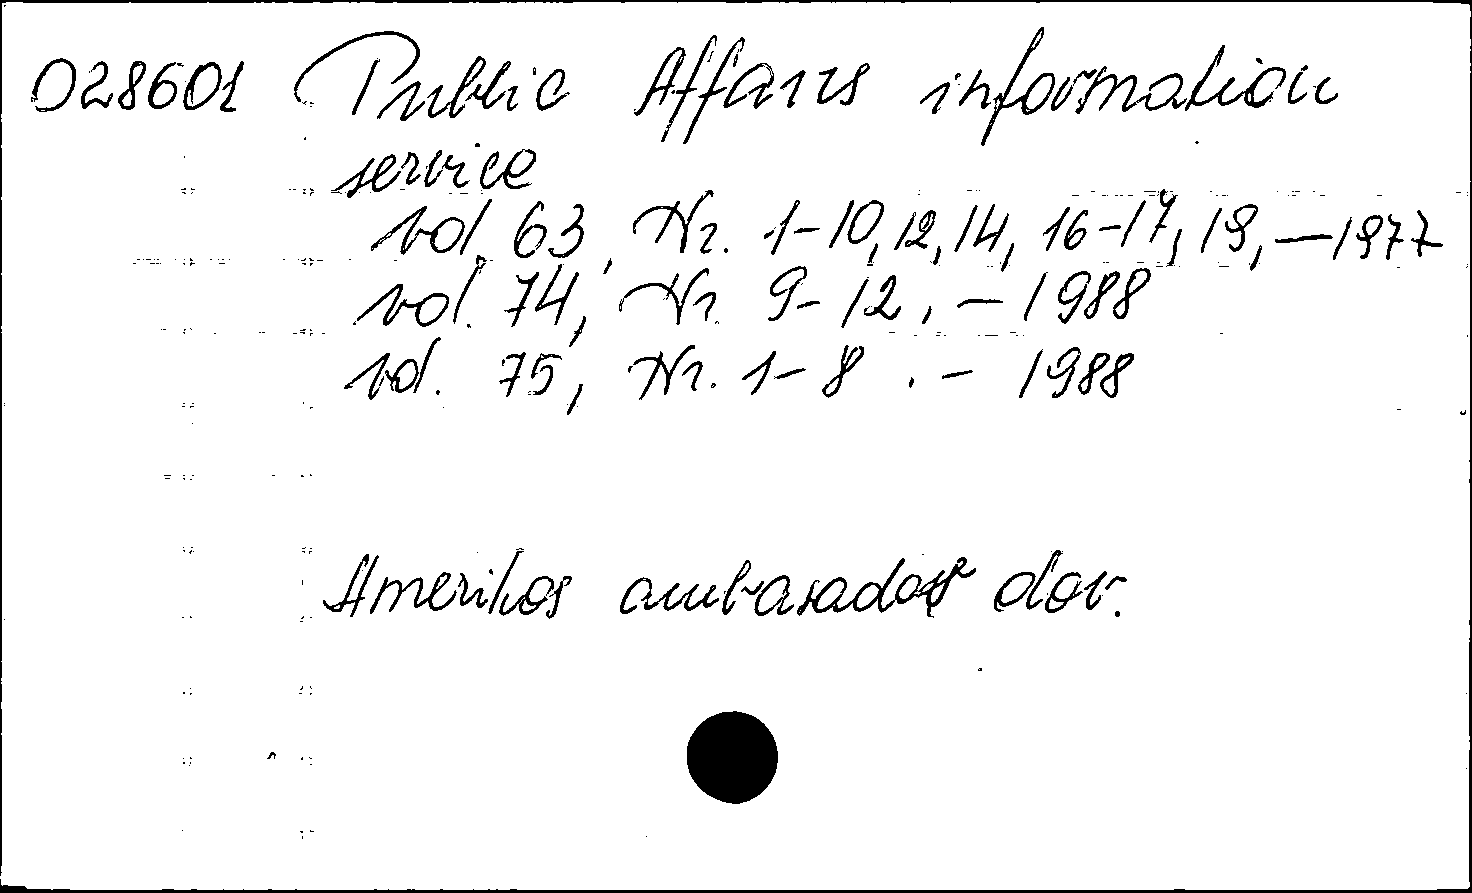 028601 Public Affairs information
service
vol. 63, Nr. 1-10, 12, 14, 16-17, 19, — 1977
vol. 74, Nr. 9-12. — 1988
vol. 75, Nr. 1-8 . — 1988
Amerikos ambasados dov.